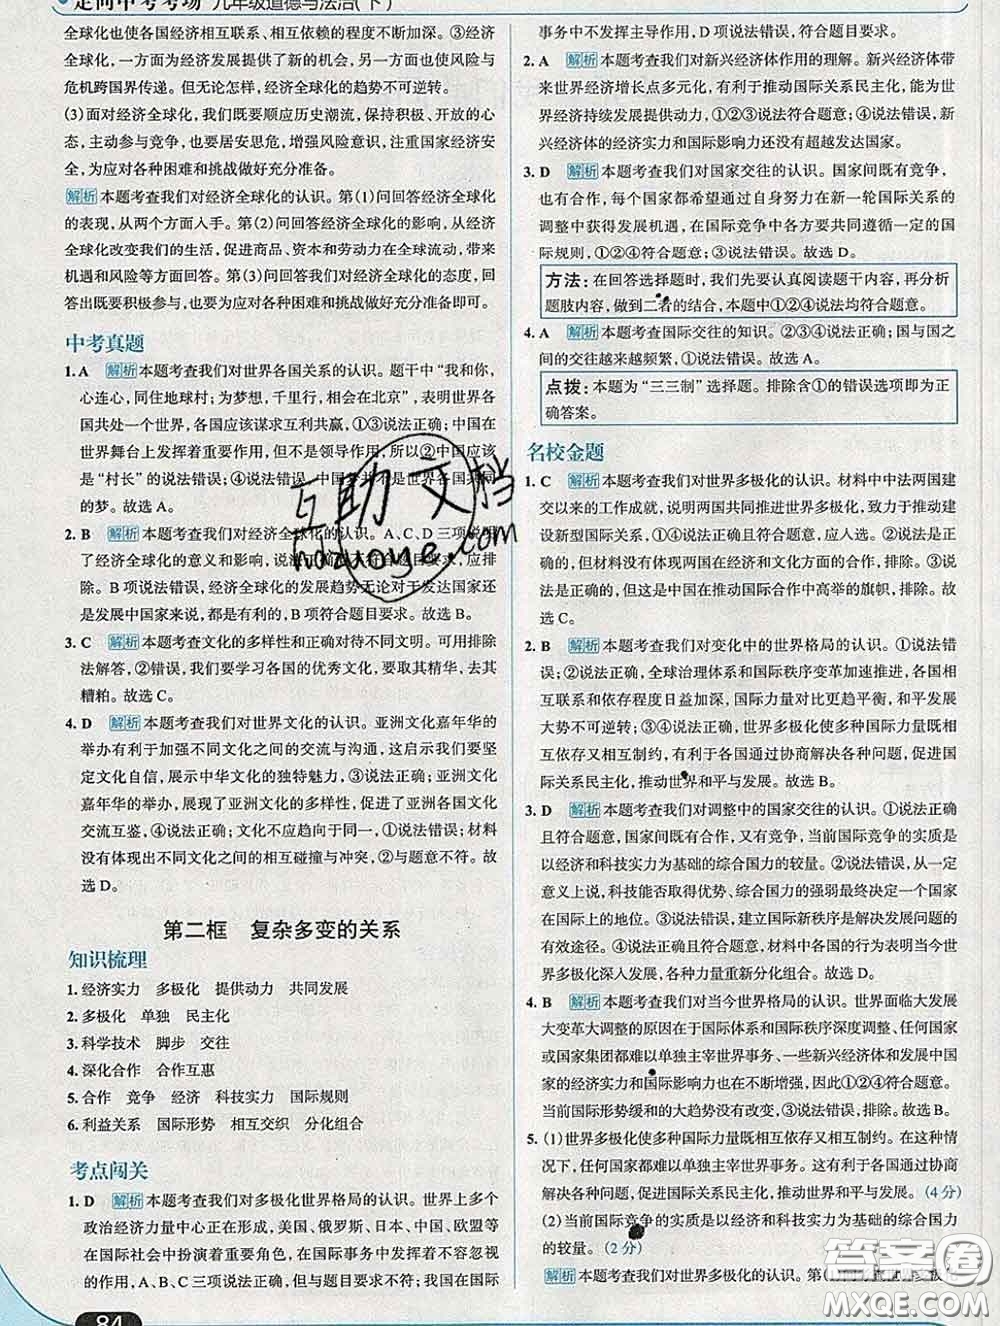 走向中考考场 九年级道德与法治(下)
全球化也使各国经济相互联系、相互依赖的程度不断加深。③经济
全球化,一方面为经济发展提供了新的机会,另一方面也使风险与
危机跨国界传递。但无论怎样,经济全球化的趋势不可逆转。
(3)面对经济全球化,我们既要顺应历史潮流,保持积极、开放的心
态,主动参与竞争,也要居安思危,增强风险意识,注重国家经济安
全,为应对各种困难和挑战做好充分准备。
解析 本题考查我们对经济全球化的认识。第(1)问回答经济全球化
的表现,从两个方面入手。第(2)问回答经济全球化的影响,从经济
全球化改变我们的生活,促进商品、资本和劳动力在全球流动,带来
机遇和风险等方面回答。第(3)问回答我们对经济全球化的态度,回
答出既要积极参与,也要为应对各种困难和挑战做好充分准备即可。
中考真题
1. A 解析 本题考查我们对世界各国关系的认识。题干中“我和你,
心连心,同住地球村;为梦想,千里行,相会在北京”,表明世界各
国共处一个世界,各国应该谋求互利共赢,①③说法正确;中国在
世界舞台上发挥着重要作用,但不是主导作用,所以②中国应该
是“村长”的说法错误;④说法错误,中国梦并不是世界各国共同
的梦。故选A。
2. B 解析 本题考查我们对经济全球化的认识。A、C、D三项说明
了经济全球化的意义和影响,说法正确但不符合题目要求,应排
除。B项说法错误,经济全球化的发展趋势无论对于发达国家还
是发展中国家来说,都是有利的,B项符合题目要求。故选B。
3. C 解析 本题考查文化的多样性和正确对待不同文明。可用排除
法解答,②错误,我们要学习各国的优秀文化,要取其精华,去其
糟粕。故选C。
4. D 解析 本题考查我们对世界文化的认识。亚洲文化嘉年华的
举办有利于加强不同文化之间的交流与沟通,这启示我们要坚
定文化自信,展示中华文化的独特魅力,③说法正确;亚洲文化
嘉年华的举办,展现了亚洲文化的多样性,促进了各国之间文化
交流互鉴,④说法正确;文化不应趋向于同一,①说法错误;材料
没有体现出不同文化之间的相互碰撞与冲突,②与题意不符。故
选D。
第二框 复杂多变的关系
知识梳理
1. 经济实力 多极化 提供动力 共同发展
2. 多极化 单独 民主化
3. 科学技术 脚步 交往
4. 深化合作 合作互惠
5. 合作 竞争 经济 科技实力 国际规则
6. 利益关系 国际形势 相互交织 分化组合
考点闯关
1. D 解析 本题考查我们对多极化世界格局的认识。世界上多个
政治经济力量中心正在形成,美国、俄罗斯、日本、中国、欧盟等
在国际社会中扮演着重要角色,在国际事务中发挥着不容忽视
的作用,A、B、C三项说法正确但与题目要求不符;我国在国际
84
事务中不发挥主导作用,D项说法错误,符合题目要求。
2. A 解析 本题考查我们对新兴经济体作用的理解。新兴经济体带
来世界经济增长点多元化,有利于推动国际关系民主化,能为世
界经济持续发展提供动力,①②③说法符合题意;④说法错误,新
兴经济体的经济实力和国际影响力还没有超越发达国家。
3. D 解析 本题考查我们对国家交往的认识。国家间既有竞争,
也有合作,每个国家都希望通过自身努力在新一轮国际关系的
调整中获得发展机遇,在国际竞争中各方要共同遵循一定的国
际规则,①②④符合题意;③说法错误。故选D。
方法:在回答选择题时,我们先要认真阅读题干内容,再分析
题肢内容,做到二者的结合,本题中①②④说法均符合题意。
4. A 解析 本题考查国际交往的知识。②③④说法正确;国与国之
间的交往越来越频繁,①说法错误。故选A。
点拨:本题为“三三制”选择题。排除含①的错误选项即为正
确答案。
名校金题
1. C 解析 本题考查我们对世界多极化的认识。材料中中法两国建
交以来的工作成就,说明两国共同推进世界多极化,致力于推动
建设新型国际关系,①④说法正确且符合题意,应入选。②说法是正
确的,但材料没有体现两国在经济和文化方面的合作,排除。③说
法是正确的,但这是中国在推动国际合作中高举的旗帜,排除。故
选C。
2. B 解析 本题考查我们对变化中的世界格局的认识。①说法错
误;②说法正确,全球治理体系和国际秩序变革加速推进,各国相
互联系和依存程度日益加深,国际力量对比更趋平衡,和平发展
大势不可逆转;③④说法正确,世界多极化使多种国际力量既相
互依存又相互制约,有利于各国通过协商解决各种问题,促进国
际关系民主化,推动世界和平与发展。故选B。
3. D 解析 本题考查我们对调整中的国家交往的认识。①说法正确
且符合题意,国家间既有合作,又有竞争,当前国际竞争的实质是
以经济和科技实力为基础的综合国力的较量。②说法错误,从一定
意义上说,科技能否取得优势、综合国力的强弱最终决定一个国家
在国际上的地位。③说法错误,建立国际新秩序是解决发展问题的
有效途径。④说法正确且符合题意,材料中各国的行为表明当今世
界多极化深入发展,各种力量重新分化组合。故选D。
4. B 解析 本题考查我们对当今世界格局的认识。世界面临大发展
大变革大调整的原因在于国际体系和国际秩序深度调整、任何国家
或国家集团都难以单独主宰世界事务、一些新兴经济体和发展中国
家的经济实力和国际影响力也在不断增强,因此①②④符合题意。
当前国际形势缓和的大趋势没有改变,③说法错误。故选B。
5. (1)世界多极化使多种国际力量既相互依存又相互制约。在这种情
况下,任何国家都难以单独主宰世界事务。这有利于各国通过协商
解决各种问题,促进国际关系民主化,推动世界和平与发展。(4分)
(2)当前国际竞争的实质是以经济和科技实力为基础的综合国力
的较量。(2分)
解析 本题考查我们对世界多极化的认识。第(1)问
互助文档
hdzuoye.com
答案圈
MXQE.COM